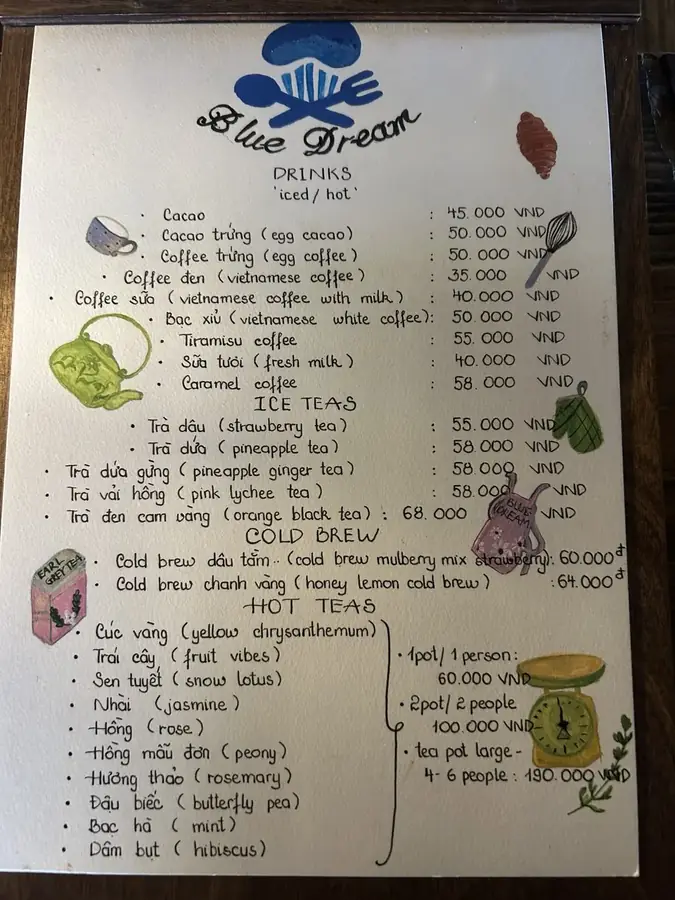 Blue Dream
DRINKS
'iced / hot'
· Cacao : 45.000 VND
· Cacao trứng (egg cacao) : 50.000 VND
· Coffee trứng (egg coffee) : 50.000 VND
· Coffee đen (vietnamese coffee) : 35.000 VND
· Coffee sữa (vietnamese coffee with milk) : 40.000 VND
· Bạc xỉu (vietnamese white coffee): 50.000 VND
· Tiramisu coffee : 55.000 VND
· Sữa tươi (fresh milk) : 40.000 VND
· Caramel coffee : 58.000 VND
ICE TEAS
· Trà dâu (strawberry tea) : 55.000 VND
· Trà dứa (pineapple tea) : 58.000 VND
· Trà dứa gừng (pineapple ginger tea) : 58.000
· Trà vải hồng (pink lychee tea) : 58.000 VND
· Trà đen cam vàng (orange black tea) : 68.000 VND
BLUE DREAM
COLD BREW
· Cold brew dâu tằm.. (cold brew mulberry mix strawberry): 60.000đ
· Cold brew chanh vàng (honey lemon cold brew) : 64.000đ
EARL GREY TEA
HOT TEAS
· Cúc vàng (yellow chrysanthemum)
· Trái cây (fruit vibes)
· Sen tuyết (snow lotus)
· Nhài (jasmine)
· Hồng (rose)
· Hồng mẫu đơn (peony)
· Hương thảo (rosemary)
· Đậu biếc (butterfly pea)
· Bạc hà (mint)
· Dâm bụt (hibiscus)
· 1pot/ 1 person:
60.000 VND
· 2pot/ 2 people
100.000 VND
· tea pot large -
4- 6 people : 190.000 VND